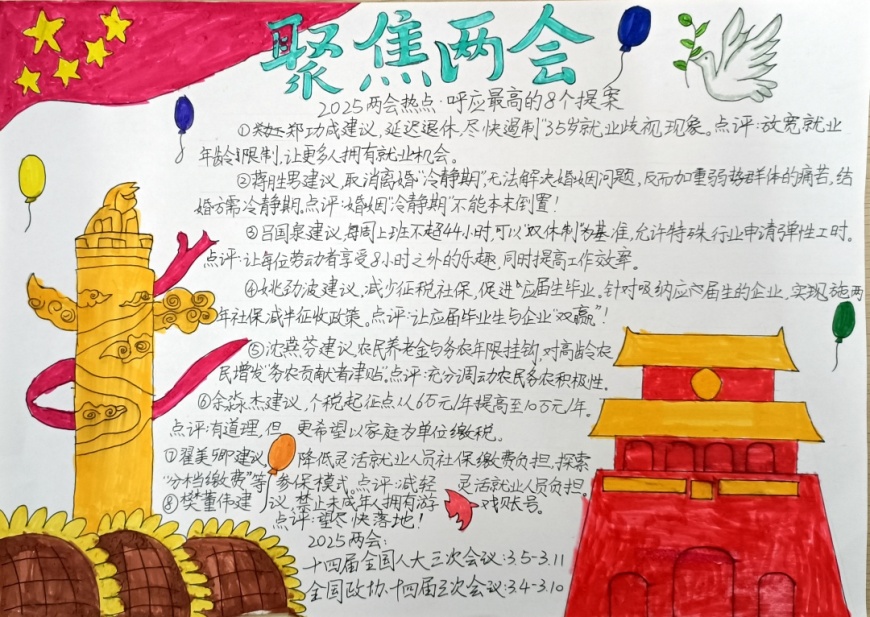 聚焦两会
2025两会热点·呼应最高的8个提案
①郑功成建议,延迟退休,尽快遏制"35岁就业歧视"现象。点评:放宽就业
年龄限制,让更多人拥有就业机会。
②蒋胜男建议,取消离婚"冷静期",无法解决婚姻问题,反而加重弱势群体的痛苦,结
婚方需冷静期。点评:婚姻"冷静期"不能本末倒置!
③吕国泉建议,每周上班不超44小时,可以"双休制"为基准,允许特殊行业申请弹性工时。
点评:让每位劳动者享受8小时之外的乐趣,同时提高工作效率。
④姚劲波建议,减少征税社保,促进应届生毕业。针对吸纳应届生的企业,实现施两
年社保减半征收政策。点评:让应届毕业生与企业"双赢"!
⑤沈燕芬建议,农民养老金与务农年限挂钩,对高龄农
民增发"务农贡献者津贴"。点评:充分调动农民务农积极性。
⑥余淼杰建议,个税起征点从6万元/年提高至10万元/年。
点评:有道理,但更希望以家庭为单位缴税。
⑦翟美卿建议,降低灵活就业人员社保缴费负担,探索
"分档缴费"等参保模式。点评:减轻灵活就业人员负担。
⑧樊董伟建议,禁止未成年人拥有游戏账号。
点评:望尽快落地!
2025两会:
十四届全国人大三次会议:3.5-3.11
全国政协十四届三次会议:3.4-3.10